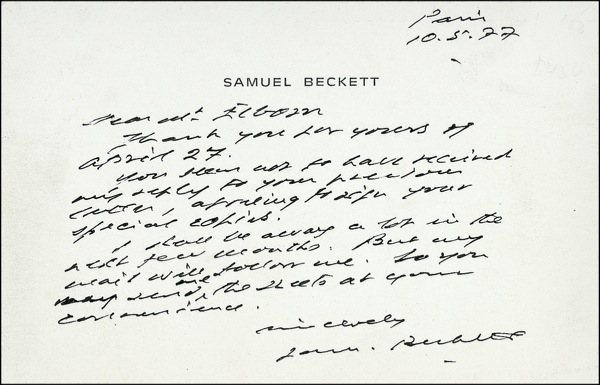 Paris
10.5.77
SAMUEL BECKETT
Dear Mr Elborn
Thank you for yours of
April 27.
You seem not to have received
my reply to your previous
letter, agreeing to sign your
special copies.
I shall be away a lot in the
next few months. But my
mail will follow me. So you
may send me the sheets at your
convenience.
Sincerely
Sam. Beckett